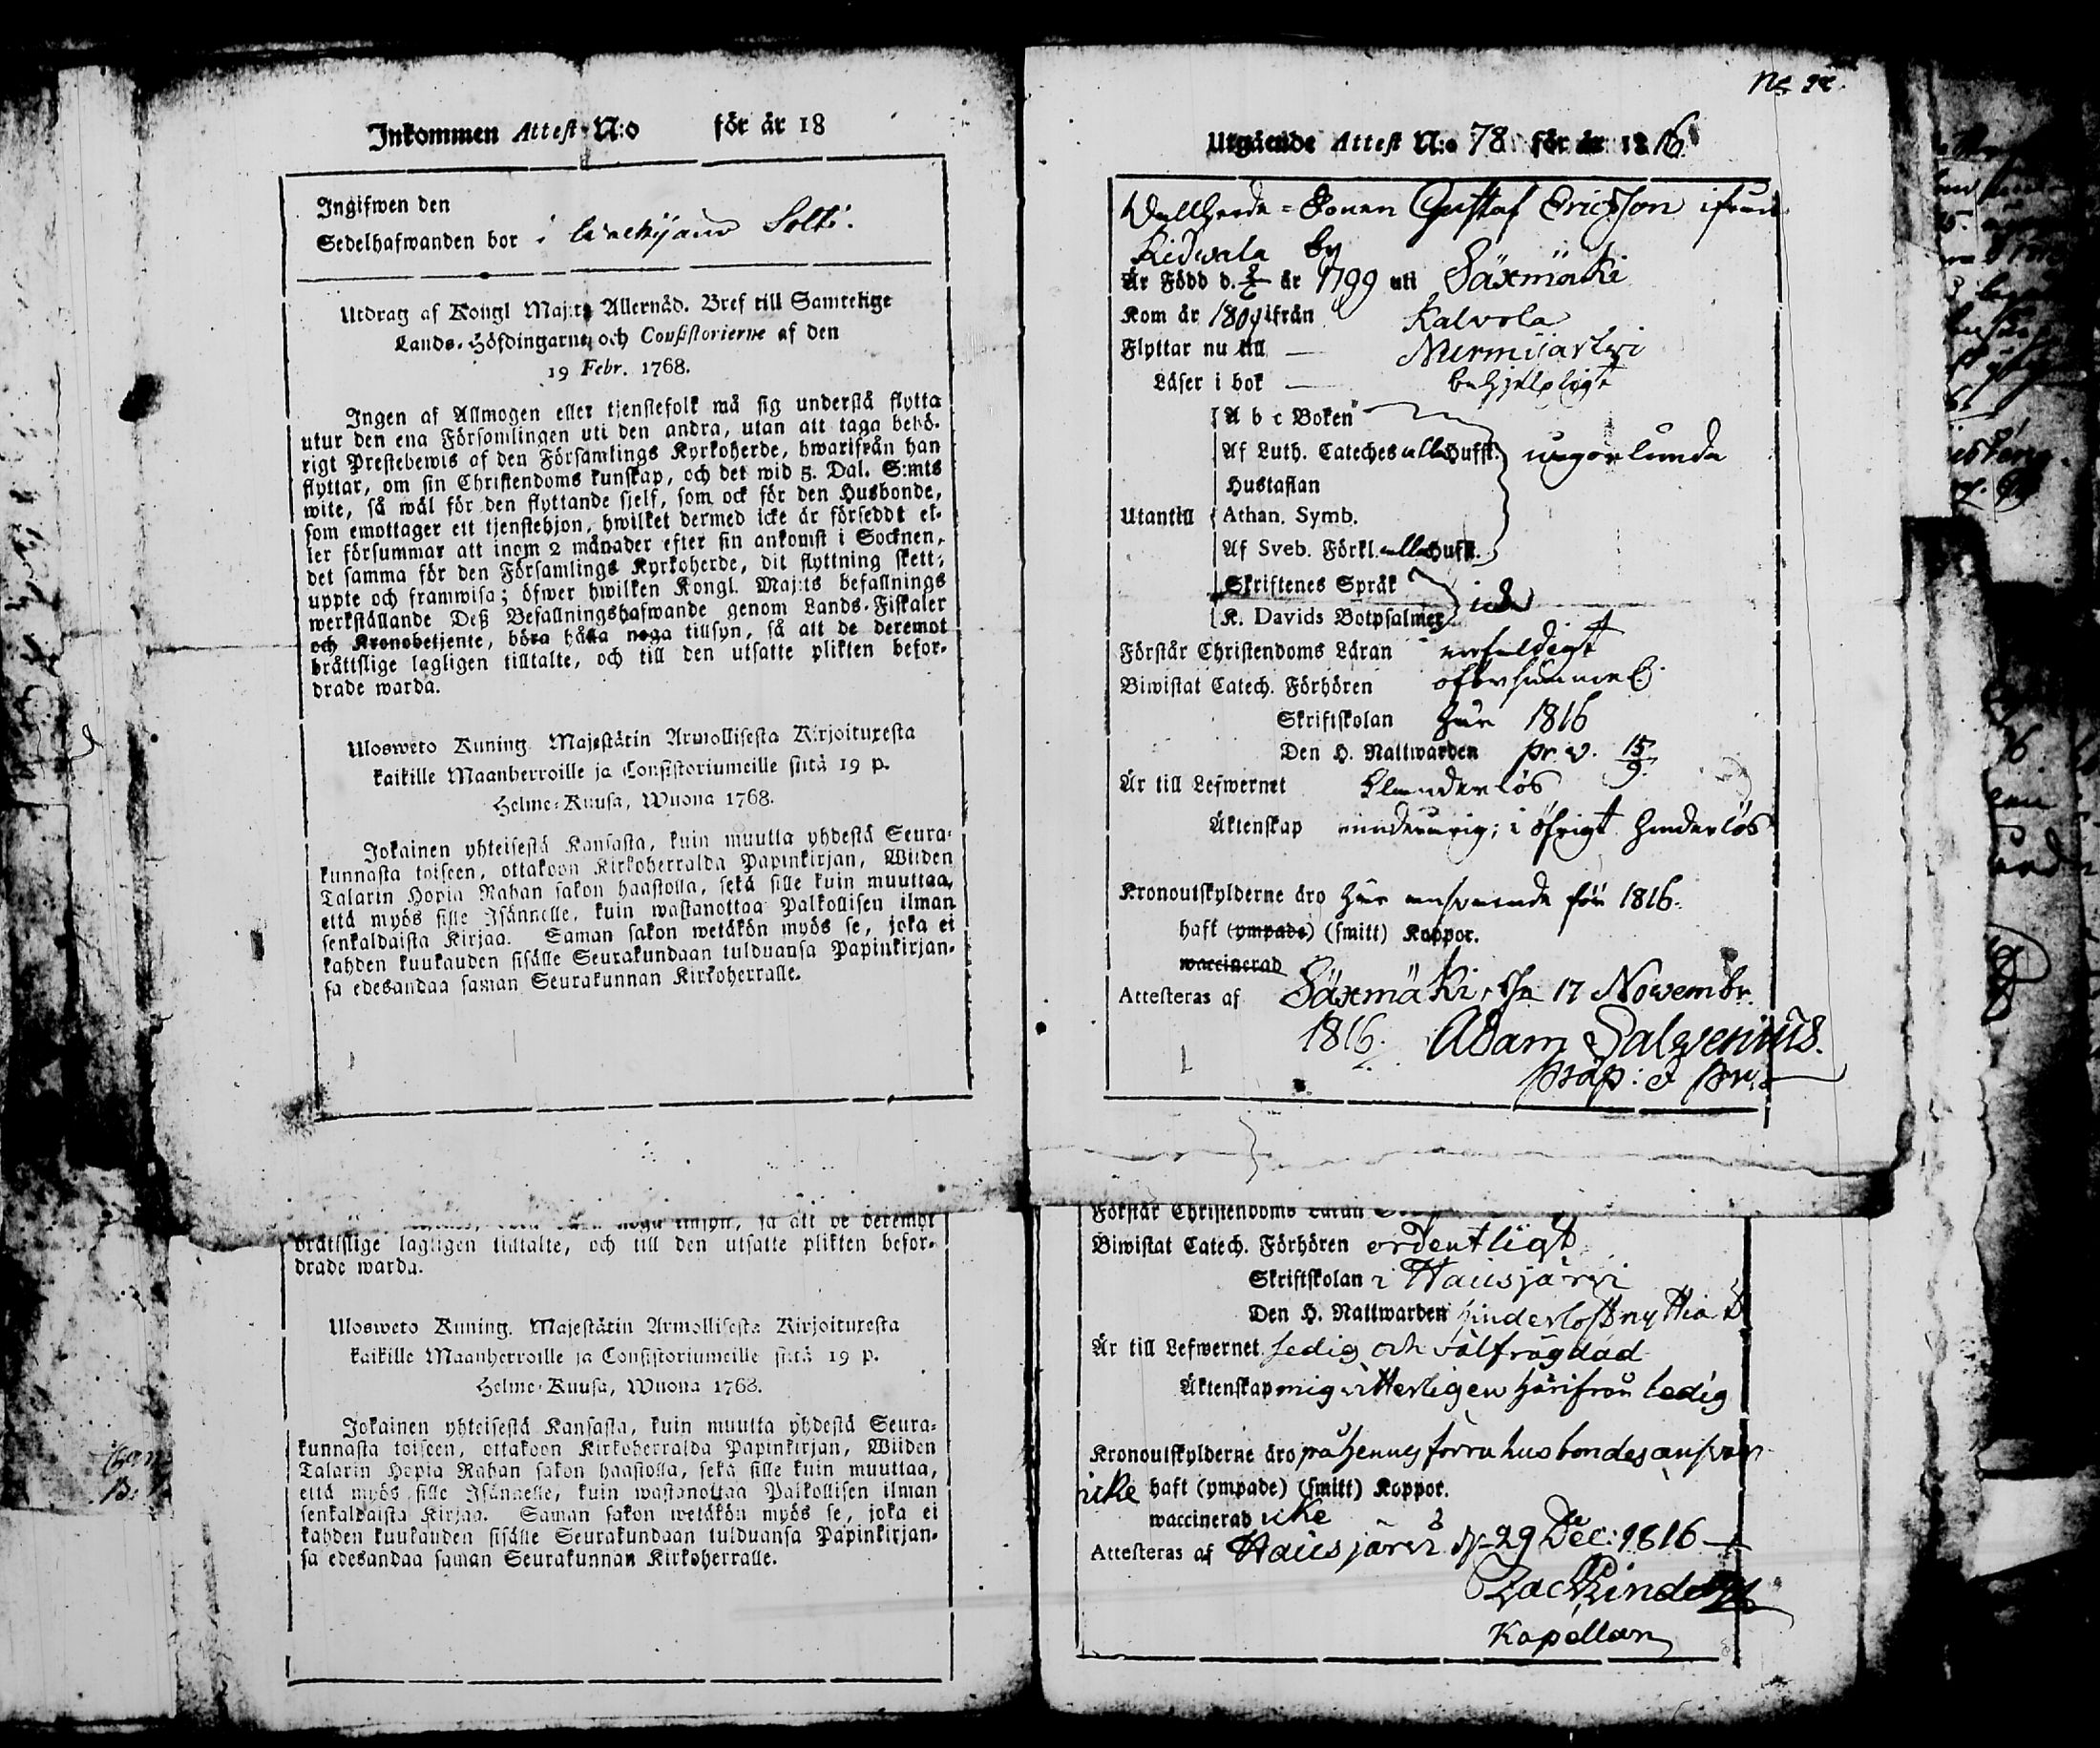 Inkommen Attest N:o för år 18
Ingifwen den
Sedelhafwanden bor i
Utdrag af Kongl Maj:ts Allernåd. Bref till Samtelige
Lands-Höfdingarne och Consistorierne af den
19 Febr. 1768.
Ingen af Allmogen eller tjenstefolk må sig understå flytta
utur den ena Församlingen uti den andra, utan att taga behö-
rigt Prestebewis af den Församlings Kyrkoherde, hwarifrån han
flyttar, om sin Christendoms kunskap, och det wid 5. Dal. S:mts
wite, så wäl för den flyttande sjelf, som ock för den Husbonde,
som emottager ett tjenstehjon, hwilket dermed icke är försedt el-
ler försummar att inom 2 månader efter sin ankomst i Socknen,
det samma för den Församlings Kyrkoherde, dit flyttning skett,
uppte och framwisa; öfwer hwilken Kongl. Maj:ts befallnings
werkställande Deß Befallningshafwande genom Lands-Fiskaler
och Kronobetjente, böra hålla noga tillsyn, så att de deremot
bråttslige lagligen tilltalte, och till den utsatte plikten befor-
drade warda.
Ulosweto Kuning. Majestätin Armollisesta Kirjoituxesta
kaikille Maanherroille ja Consistoriumeille siitä 19 p.
Helme-Kuusa, Wuona 1768.
Jokainen yhteisestä Kansasta, kuin muutta yhdestä Seura-
kunnasta toiseen, ottakoon Kirkoherralda Papinkirjan, Wiiden
Talarin Hopia Rahan sakon haastolla, sekä sille kuin muuttaa,
että myös sille Isännelle, kuin wastanottaa Palkollisen ilman
senkaldaista Kirjaa. Saman sakon wetäkön myös se, joka ei
kahden kuukauden sisälle Seurakundaan tulduansa Papinkirjan-
sa edesandaa saman Seurakunnan Kirkoherralle.
bråttslige lagligen tilltalte, och till den utsatte plikten befor-
drade warda.
Ulosweto Kuning. Majestätin Armollisesta Kirjoituxesta
kaikille Maanherroille ja Consistoriumeille siitä 19 p.
Helme-Kuusa, Wuona 1768.
Jokainen yhteisestä Kansasta, kuin muutta yhdestä Seura-
kunnasta toiseen, ottakoon Kirkoherralda Papinkirjan, Wiiden
Talarin Hopia Rahan sakon haastolla, sekä sille kuin muuttaa,
että myös sille Isännelle, kuin wastanottaa Palkollisen ilman
senkaldaista Kirjaa. Saman sakon wetäkön myös se, joka ei
kahden kuukauden sisälle Seurakundaan tulduansa Papinkirjan-
sa edesandaa saman Seurakunnan Kirkoherralle.
Utgående Attest N:o 78 för år 1816
Wallherde-Sonen Gustaf Ericsson ifrån
Kidwala by
Är Född d. år 1799 uti Säxmäki
Kom år ifrån Kalvola
Flyttar nu till — Nurmijärvi
Läser i bok — behjelpligt
A b c Boken
Af Luth. Cateches alla Hufst. någorlunda
Hustaflan
Utantill Athan. Symb.
Af Sveb. Förkl. alla Hufst.
Skriftenes Språk
K. Davids Botpsalmer icke
Förstår Christendoms Läran enfaldigt
Biwistat Catech. Förhören
Skriftskolan här 1816
Den H. Nattwarden pr. v. 15/9.
Är till Lefwernet klanderlös
Äktenskap minderårig; i öfrigt hinderlös
Kronoutskylderne äro här ansvarade för 1816.
haft (ympade) (smitt) Koppor.
waccinerad
Attesteras af Säxmäki, d. 17 Novembr.
1816. Adam Salvenius.
Förstår Christendoms Läran
Biwistat Catech. Förhören ordentligt
Skriftskolan i Hausjärvi
Den H. Nattwarden
Är till Lefwernet ledig och välfrägdad
Äktenskap mig vitterligen härifrån ledig
Kronoutskylderne äro på hennes förra husbondes ansvar
icke haft (ympade) (smitt) Koppor.
waccinerad icke
Attesteras af Hausjärvi d. 29 Dec: 1816
Kapellan